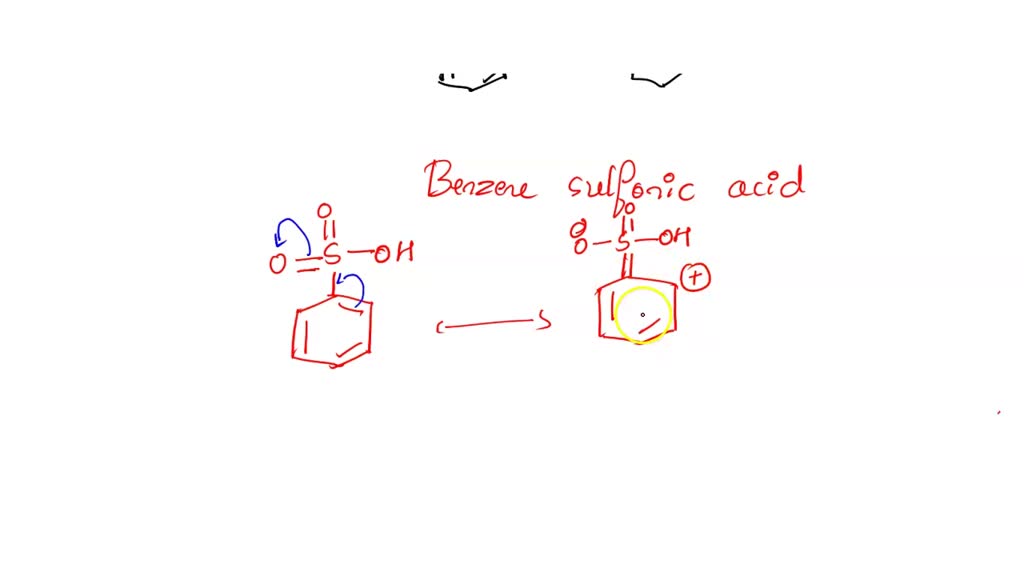 Benzene sulfonic acid
O O
O=S-OH O-S-OH
+